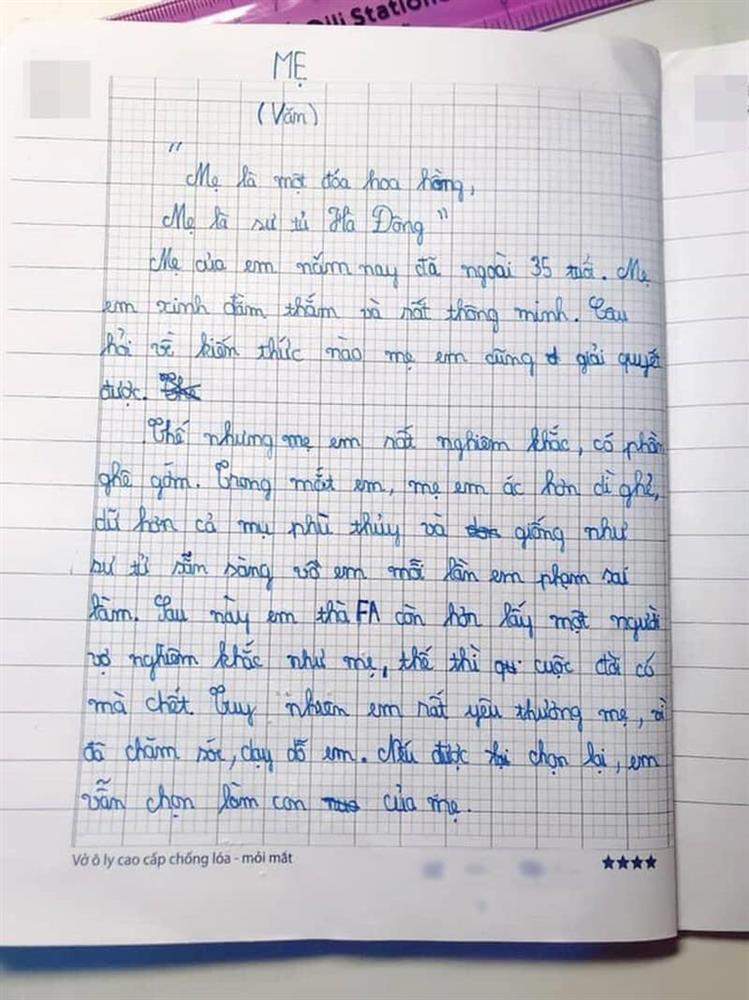 Oli Station
MẸ
(Văn)
"
Mẹ là một đóa hoa hồng,
Mẹ là sư tử Hà Đông"
Mẹ của em năm nay đã ngoài 35 tuổi. Mẹ
em xinh đằm thắm và rất thông minh. Câu
hỏi về kiến thức nào mẹ em cũng giải quyết
được.
Thế nhưng mẹ em rất nghiêm khắc, có phần
ghê gớm. Trong mắt em, mẹ em ác hơn dì ghẻ,
dữ hơn cả mụ phù thủy và giống như
sư tử sẵn sàng vồ em mỗi lần em phạm sai
lầm. Sau này em thà FA còn hơn lấy một người
vợ nghiêm khắc như mẹ, thế thì cuộc đời có
mà chết. Tuy nhiên em rất yêu thương mẹ, vì
đã chăm sóc, dạy dỗ em. Nếu được chọn lại, em
vẫn chọn làm con của mẹ.
Vở ô ly cao cấp chống lóa - mỏi mắt